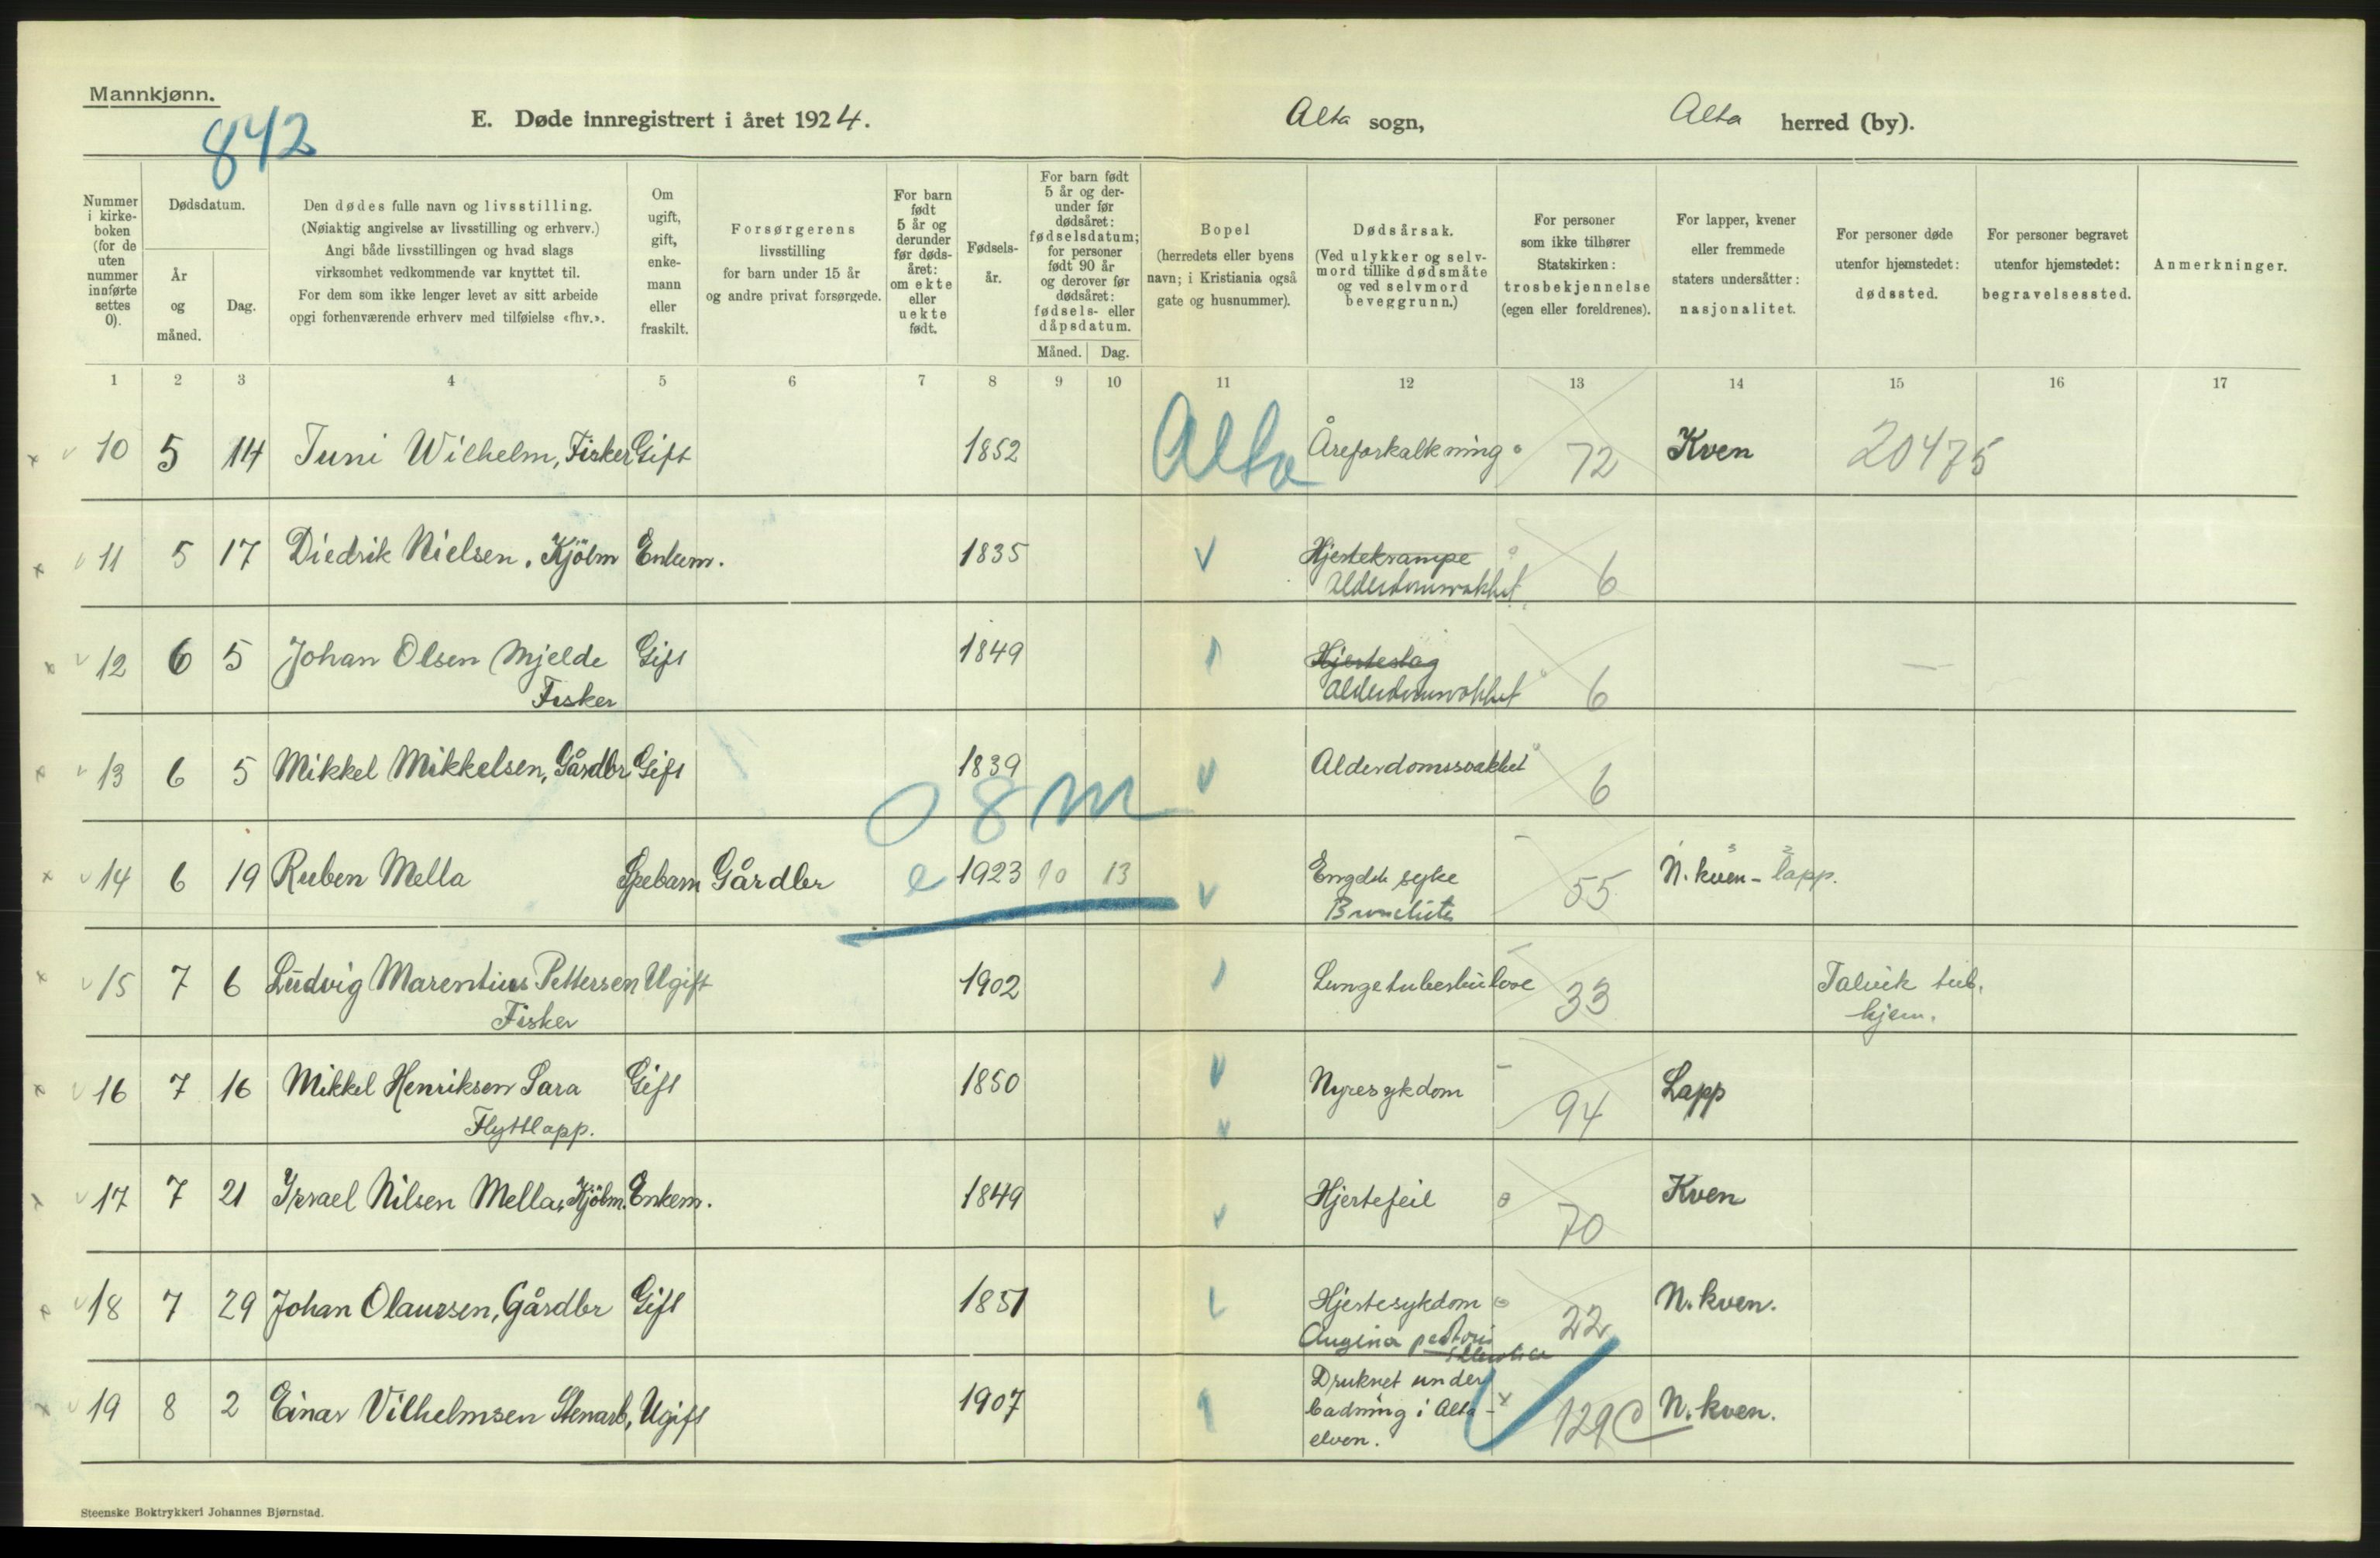 Mannkjønn.
842
E. Døde innregistrert i året 1924.
Alta sogn,
Alta herred (by).
Nummer i kirke-boken (for de uten nummer innførte settes 0).
Dødsdatum.
År og måned.
Dag.
Den dødes fulle navn og livsstilling.
(Nøiaktig angivelse av livsstilling og erhverv.)
Angi både livsstillingen og hvad slags
virksomhet vedkommende var knyttet til.
For dem som ikke lenger levet av sitt arbeide
opgi forhenværende erhverv med tilføielse «fhv.».
Om ugift, gift, enke-mann eller fraskilt.
Forsørgerens
livsstilling
for barn under 15 år
og andre privat forsørgede.
For barn født 5 år og derunder før døds-året: om ekte eller uekte født.
Fødsels-år.
For barn født 5 år og der-under før dødsåret: fødselsdatum; for personer født 90 år og derover før dødsåret: fødsels- eller dåpsdatum.
Måned.
Dag.
Bopel
(herredets eller byens
navn; i Kristiania også
gate og husnummer).
Dødsårsak.
(Ved ulykker og selv-
mord tillike dødsmåte
og ved selvmord
beveggrunn.)
For personer
som ikke tilhører
Statskirken:
trosbekjennelse
(egen eller foreldrenes).
For lapper, kvener
eller fremmede
staters undersåtter:
nasjonalitet.
For personer døde
utenfor hjemstedet:
dødssted.
For personer begravet
utenfor hjemstedet:
begravelsessted.
Anmerkninger.
1 2 3 4 5 6 7 8 9 10 11 12 13 14 15 16 17
10 5 14 Tuni Wilhelm, Fisker Gift 1852 Alta Åreforkalkning 72 Kven 20475
11 5 17 Diedrik Nielsen, Kjölm Enkem. 1835 Hjertekrampe 6
Alderdomsvakhet
12 6 5 Johan Olsen Mjelde Gift 1849 Hjerteslag 6
Fisker Alderdomsvakhet
13 6 5 Mikkel Mikkelsen, Gårdbr Gift 1839 Alderdomssvakhet 6
08m
14 6 19 Ruben Mella Spebarn Gårdbr e 1923 10 13 Engelsk syke 55 N. kven - lapp.
15 7 6 Ludvig Marentius Pettersen Ugift 1902 Lungetuberkulose 33 Talvik tub.
Fisker hjem.
16 7 16 Mikkel Henriksen Sara Gift 1850 Nyresykdom 94 Lapp
Flyttlapp.
17 7 21 Israel Nilsen Mella, Kjölm. Enkem. 1849 Hjertefeil 70 Kven
18 7 29 Johan Olaussen, Gårdbr Gift 1851 Hjertesykdom 22 N. kven.
Angina pectoris
19 8 2 Einar Vilhelmsen Stenarb, Ugift 1907 Druknet under
badning i Alta- 129 N. kven.
elven.
Steenske Boktrykkeri Johannes Bjørnstad.